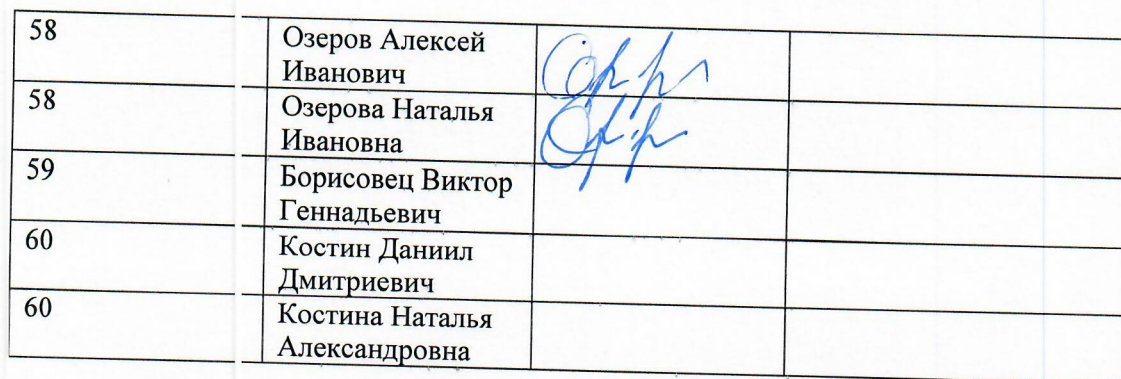 58
Озеров Алексей
Иванович
58
Озерова Наталья
Ивановна
59
Борисовец Виктор
Геннадьевич
60
Костин Даниил
Дмитриевич
60
Костина Наталья
Александровна